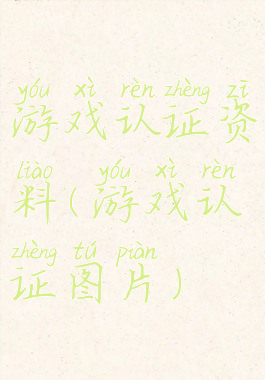 yóu xì rèn zhèng zī
游戏认证资
liào yóu xì rèn
料(游戏认
zhèng tú piàn
证图片)